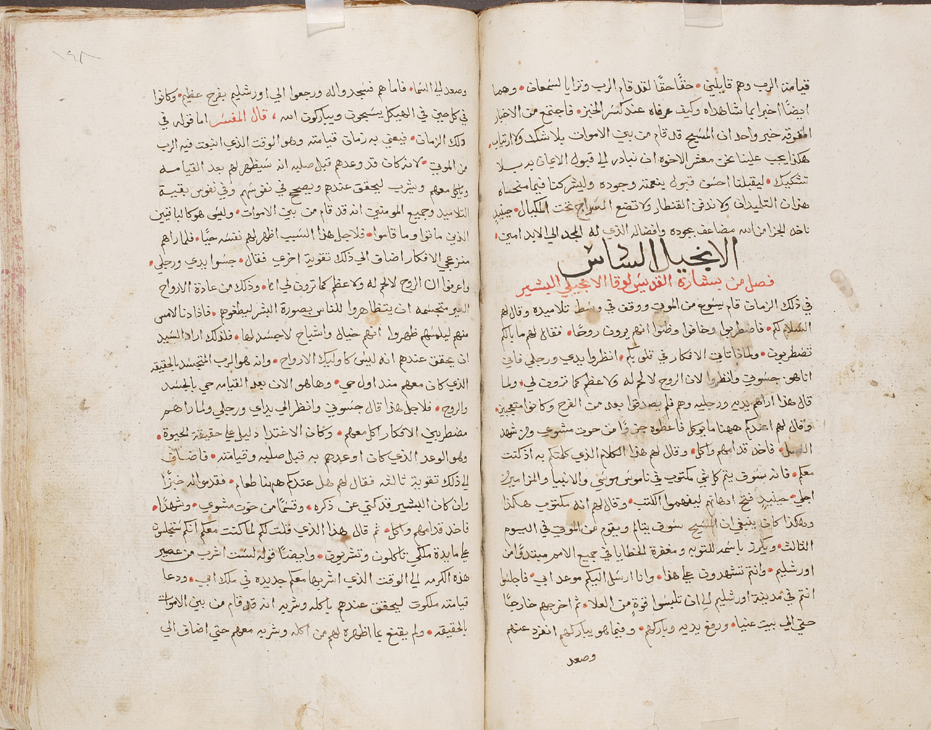 قيامة الرب وهم قايلين • حقًا حقًا لقد قام الرب وترايا لسمعان • وهما
ايضًا اخبرا بما شاهداه وكيف عرفاه عند كسر الخبز • فاجتمع من الاخبار
خبر واحد ان المسيح قد قام من بين الاموات بلا شك ولا ارتياب •
هكذا يجب علينا نحن معشر الاخوة ان نبادر الى قبول الايمان به بلا
تشكيك • ليقبلنا احسن قبول بنعمته وجوده وليشركنا فيما منحهما
هذان التلميذان ولا ندفن القنطار ولا نضع السراج تحت المكيال • حينيذٍ
ناخد الجزا من الله مضاعف بجوده وافضاله الذي له المجد الى الابد امين •
الانجيل السادس
فصل من بشارة القديس لوقا الانجيلي البشير
في ذلك الزمان قام يسوع من الموتى ووقف في وسط تلاميذه وقال لهم
السلام لكم • فاضطربوا وخافوا وظنوا انهم يرون روحًا • فقال لهم ما بالكم
تضطربون • ولماذا تاتي الافكار في قلوبكم • انظروا يدي ورجلي فاني
انا هو • جسوني وانظروا لان الروح لا لحم له ولا عظم كما ترون لي • ولما
قال هذا اراهم يديه ورجليه وهم فلم يصدقوا بعد من الفرح وكانوا متعجبين •
وقال لهم اعندكم ههنا ما يوكل • فاعطوه جزءًا من حوت مشوي ومن شهد
العسل • فاخد قدامهم واكل • وقال لهم هذا الكلام الذي كلمتكم به اذ كنت
معكم • فانه سوف يتم كل شي مكتوب في ناموس موسى والانبيا والمزامير
لاجلي • حينيذٍ فتح اذهانهم ليفهموا الكتب • وقال لهم انه مكتوب هكذا
وهكذا كان ينبغي ان المسيح سوف يتالم ويقوم من الموتى في اليوم
الثالث • ويكرز باسمه للتوبه ومغفرة الخطايا في جميع الامم مبتديًا من
اورشليم • وانتم تشهدون على هذا • وانا ارسل اليكم موعد ابي • فاجلسوا
انتم في مدينة اورشليم الى ان تلبسوا قوة من العلاء • ثم اخرجهم خارجًا
حتى الى بيت عنيا • ورفع يديه وباركهم • وفيما هو يباركهم انفرد عنهم
وصعد
١٩٨
وصعد الى السما • فاما هم فسجدوا له ورجعوا الى اورشليم بفرح عظيم • وكانوا
في كل حين في الهيكل يسبحون ويباركون الله • قال المفسر اما قوله في
ذلك الزمان • فيعني به زمان قيامته وهو الوقت الذي انبعث فيه الرب
من الموتى • لانه كان قد وعدهم قبل صلبه انه سيظهر لهم بعد القيامه
وياكل معهم ويشرب ليحقق عندهم ويصحح في نفوسهم وفي نفوس بقية
التلاميذ وجميع المومنين انه قد قام من بين الاموات • وليس هو كالباقين
الذين ماتوا وما قاموا • فلاجل هذا السبب اظهر لهم نفسه حيًا • فلما راهم
منزعجي الافكار اضاف الى ذلك تقوية اخرى فقال • جسوا يدي ورجلي •
واعرفوا ان الروح لا لحم له ولا عظم كما ترون لي انا • وذلك من عادة الارواح
الغير متجسمه ان يتظاهروا للناس بصورة البشر ليطغوهم • فاذا دنا لامس
منهم ليلمسهم ظهروا انهم خيال واشباح لا جسد لها • فلذلك اراد السيد
ان يحقق عندهم انه ليس كاوليك الارواح • وانه هو الرب المتجسد بالحقيقه
الذي كان معهم منذ اول حي • وها هو الان بعد القيامه حي بالجسد
والروح • فلاجل هذا قال جسوني وانظر الى يداي ورجلي ولما راهم
مضطربين الافكار اكل معهم • وكان الاغتدا دليل على حقيقة الحيوة •
وهو الوعد الذي كان اوعدهم به قبل صلبه وقيامته • فاضاف
الى ذلك تقوية ثالثه فقال لهم هل عندكم ههنا طعام • فقدموا له خبزًا
وان كان البشير قد كني عن ذكره • وقسمًا من حوت مشوي • وشهدًا •
فاخد قدامهم واكل • ثم قال هذا الذي قلت لكم لما كنت معكم انكم ستجلسون
على مايدة ملكي تاكلون وتشربون • وايضًا قوله لست اشرب من عصير
هذه الكرمه الى الوقت الذي اشربها معكم جديده في ملك ابي • ودعا
قيامته ملكوت ليحقق عندهم باكله وشربه انه قد قام من بين الاموات
بالحقيقه • ولم يقنع بما اظهره لهم من اكله وشربه معهم حتى اضاف الى